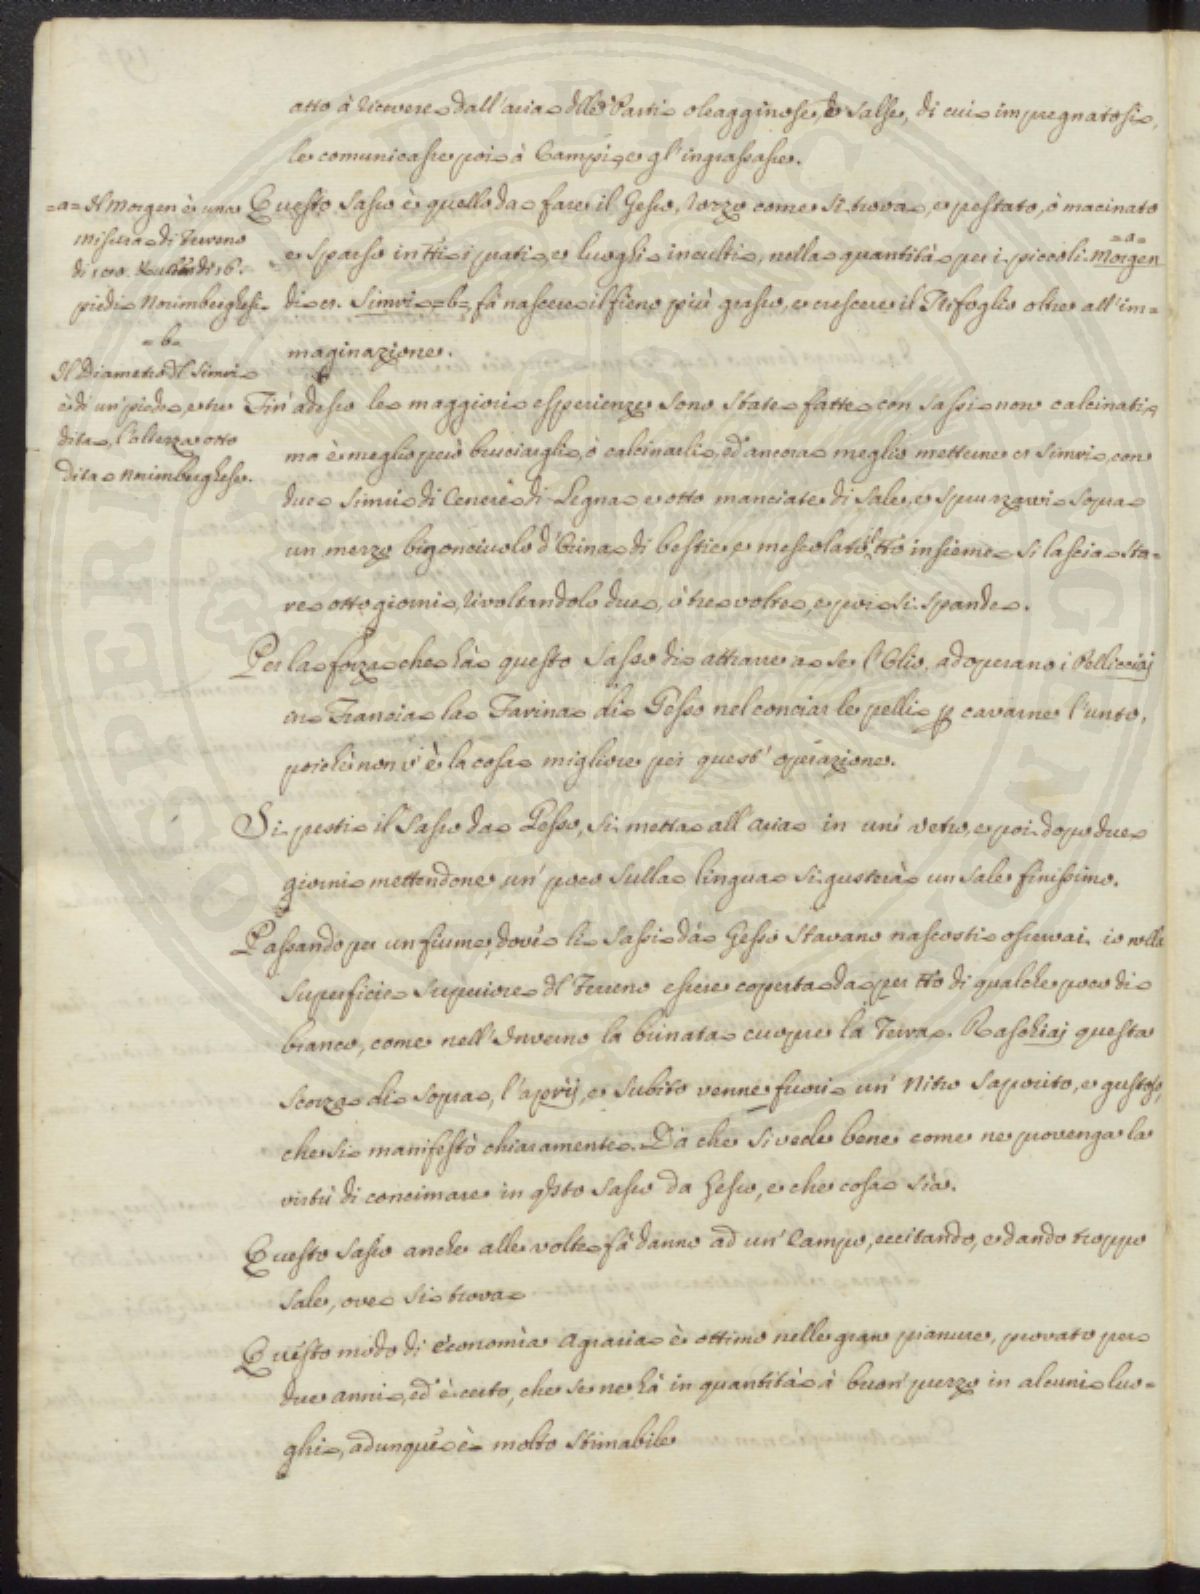 atto à ricevere dall'aria dlle Parti oleagginose, e salse, di cui impregnatosi,
le comunicasse poi à Campi, e gl'ingrassasse.
=a= Il Morgen è una
misura di Terreno
di
piedi Norimberghesi
=b=
Il Diametro dl Simri
è di un' piede, e tre
dita, l'altezza otto
dita Norimberghese.
Questo Sasso è quello da fare il Gesso, rozzo come si trova, e pestato, ò macinato
=a=
e sparso in tti i prati, e luoghi inculti, nella quantità per i piccoli Morgen
di Simri =b= fà nascere il fieno più grasso, e crescere il Trifoglio oltre all'im=
maginazione.
Fin' adesso le maggiori esperienze sono state fatte con sassi non calcinati,
ma è meglio però bruciargli, ò calcinarli, ed' ancora meglio metterne Simri, con
due Simri di Cenere di Legna e otto manciate di Sale, e spruzzarvi sopra
un mezzo bigonciuolo d'Orina di bestie, e mescolato tto insieme si lascia sta=
re otto giorni, rivoltandolo due, ò tre volte, e poi si spande.
Per la forza che hà questo Sasso di attrarre a se l'Olio, adoperano i Pellicciaj
in Francia la Farina di Gesso nel conciar le pelli p cavarne l'unto,
poichè non v'è la cosa migliore per quest' operazione.
Si pesti il Sasso da Gesso, si metta all aria in un' vetro, e poi dopo due
giorni mettendone un' poco sulla lingua si gusterà un sale finissimo.
Passando per un fiume, dove li Sassi da Gesso stavano nascosti osservai io nella
superficie superiore dl Terreno essere coperta da per tto di qualche poco di
bianco, come nell'Inverno la brinata cuopre la Terra. Raschiaj questa
scorza di sopra, l'aprij, e subito venne fuori un' Nitro saporito, e gustoso,
che si manifestò chiaramente. Da che si vede bene come ne provenga la
virtù di concimare in qsto Sasso da Gesso, e che cosa sia.
Questo Sasso anche alle volte fà danno ad un' Campo, eccitando, e dando troppo
Sale, ove si trova
Questo modo di economia Agraria è ottimo nelle gran pianure, provato per
due anni, ed' è certo, che se ne hà in quantità à buon' prezzo in alcuni luo=
ghi, adunque è molto stimabile